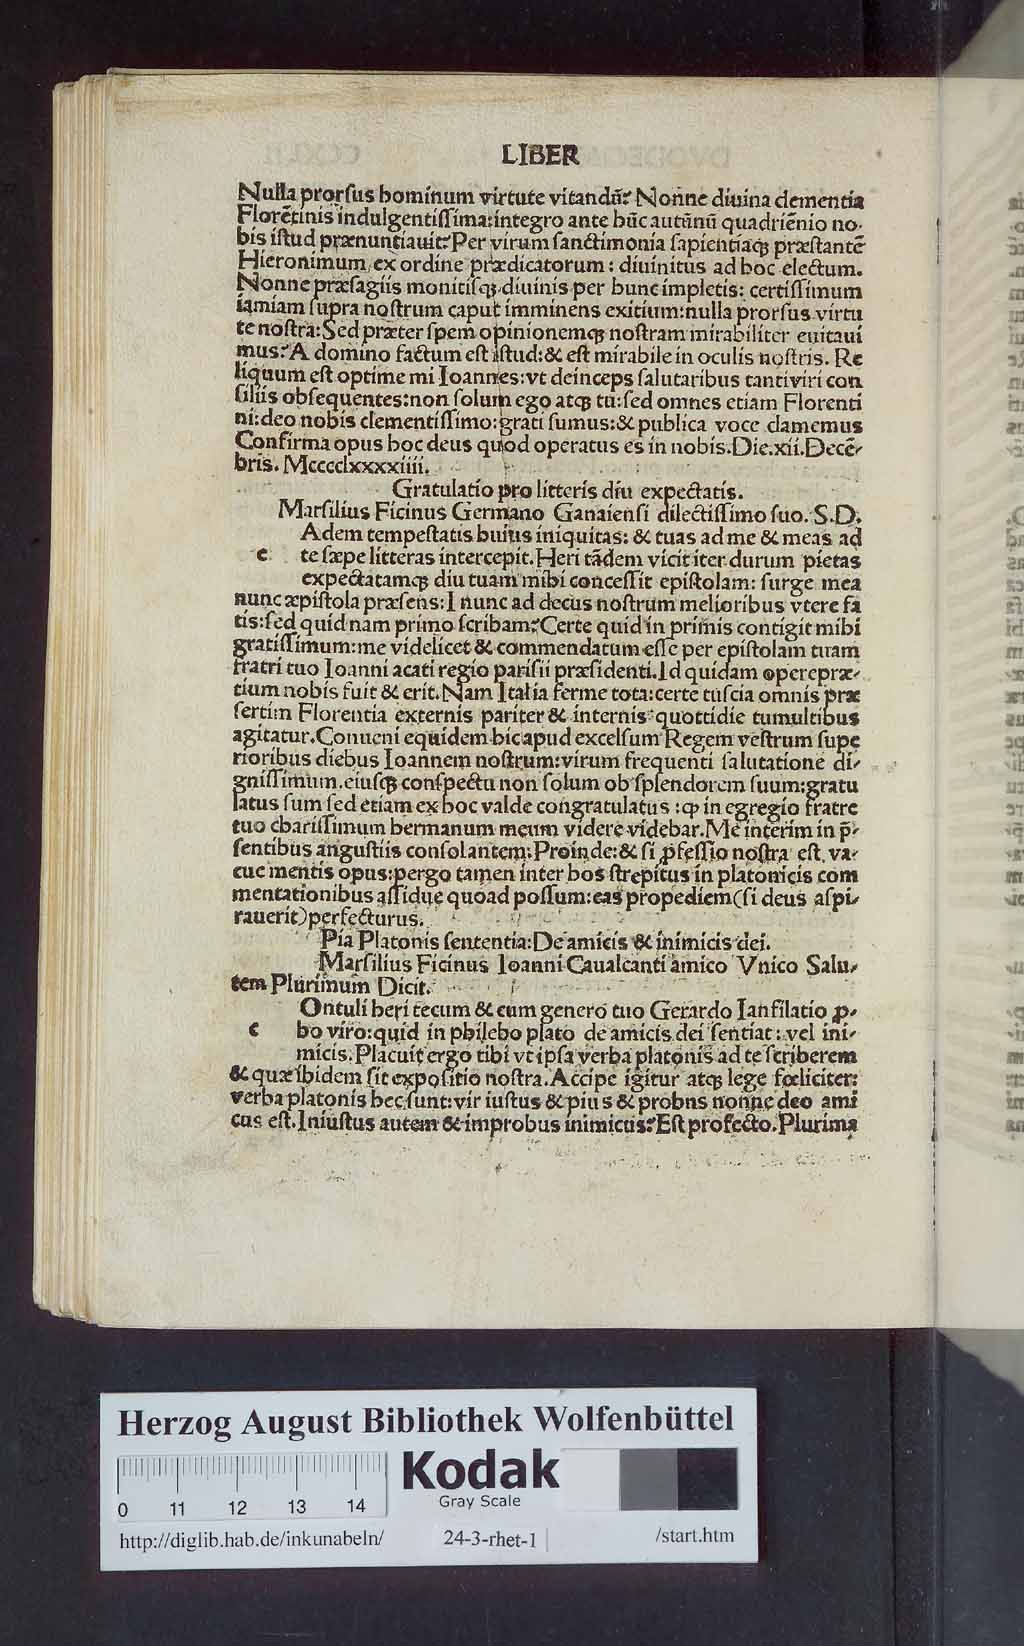 LIBER
Nulla prorſus hominum virtute vitandā? Nonne diuina clementia
Florētinis indulgentiſſima: integro ante hūc autūnū quadriēnio no-
bis iſtud prænuntiauit? Per virum ſanctimonia ſapientiaqꝫ præſtantē
Hieronimum, ex ordine prædicatorum: diuinitus ad hoc electum.
Nonne præſagiis monitiſqꝫ diuinis per hunc impletis: certiſſimum
iamiam ſupra noſtrum caput imminens exitium: nulla prorſus virtu
te noſtra: Sed præter ſpem opinionemqꝫ noſtram mirabiliter euitaui
mus? A domino factum eſt iſtud: & eſt mirabile in oculis noſtris. Re
liquum eſt optime mi Ioannes: vt deinceps ſalutaribus tanti viri con
ſiliis obſequentes: non ſolum ego atqꝫ tu: ſed omnes etiam Florenti
ni: deo nobis clementiſſimo: grati ſumus: & publica voce clamemus
Confirma opus hoc deus quod operatus es in nobis. Die. xii. Decē-
bris. Mcccclxxxxiiii.
Gratulatio pro litteris diu expectatis.
Marſilius Ficinus Germano Ganaienſi dilectiſſimo ſuo. S.D.
Adem tempeſtatis huius iniquitas: & tuas ad me & meas ad
e te ſæpe litteras intercepit. Heri tādem vicit iter durum pietas
expectatamqꝫ diu tuam mihi conceſſit epiſtolam: ſurge mea
nunc æpiſtola præſens: I nunc ad decus noſtrum melioribus vtere fa
tis: ſed quid nam primo ſcribam? Certe quid in primis contigit mihi
gratiſſimum: me videlicet & commendatum eſſe per epiſtolam tuam
fratri tuo Ioanni acati regio pariſii præſidenti. Id quidam operepræ-
tium nobis fuit & erit. Nam Italia ferme tota: certe tuſcia omnis præ
ſertim Florentia externis pariter & internis quottidie tumultibus
agitatur. Conueni equidem hic apud excelſum Regem veſtrum ſupe
rioribus diebus Ioannem noſtrum: virum frequenti ſalutatione di-
gniſſimum. eiuſqꝫ conſpectu non ſolum ob ſplendorem ſuum: gratu
latus ſum ſed etiam ex hoc valde congratulatus: ꝙ in egregio fratre
tuo chariſſimum hermanum meum videre videbar. Me interim in p̄-
ſentibus anguſtiis conſolantem. Proinde: & ſi ꝓfeſſio noſtra eſt. va-
cue mentis opus: pergo tamen inter hos ſtrepitus in platonicis com
mentationibus aſſidue quoad poſſum: eas propediem (ſi deus aſpi-
rauerit) perfecturus.
Pia Platonis ſententia: De amicis & inimicis dei.
Marſilius Ficinus Ioanni Caualcanti amico Vnico Salu-
tem Plurimum Dicit.
Ontuli heri tecum & cum genero tuo Gerardo Ianfilatio ꝓ-
c bo viro: quid in philebo plato de amicis dei ſentiat: vel ini-
micis. Placuit ergo tibi vt ipſa verba platonis ad te ſcriberem
& quæ ibidem ſit expoſitio noſtra. Accipe igitur atqꝫ lege fœliciter:
verba platonis hec ſunt: vir iuſtus & pius & probus nonne deo ami
cus eſt. Iniuſtus autem & improbus inimicus? Eſt profecto. Plurima
Herzog August Bibliothek Wolfenbüttel
0 11 12 13 14
Kodak
Gray Scale
http://diglib.hab.de/inkunabeln/ 24-3-rhet-1 /start.htm